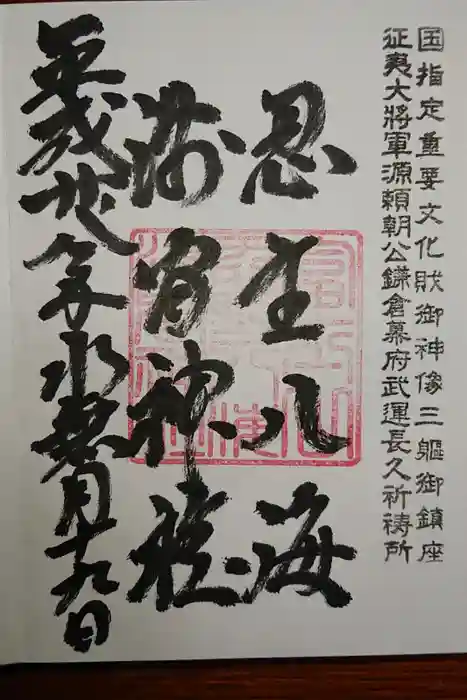 国指定重要文化財御神像三軀御鎮座
征夷大將軍源頼朝公鎌倉幕府武運長久祈禱所
忍野八海
浅間神社
平成廿八年水無月十九日